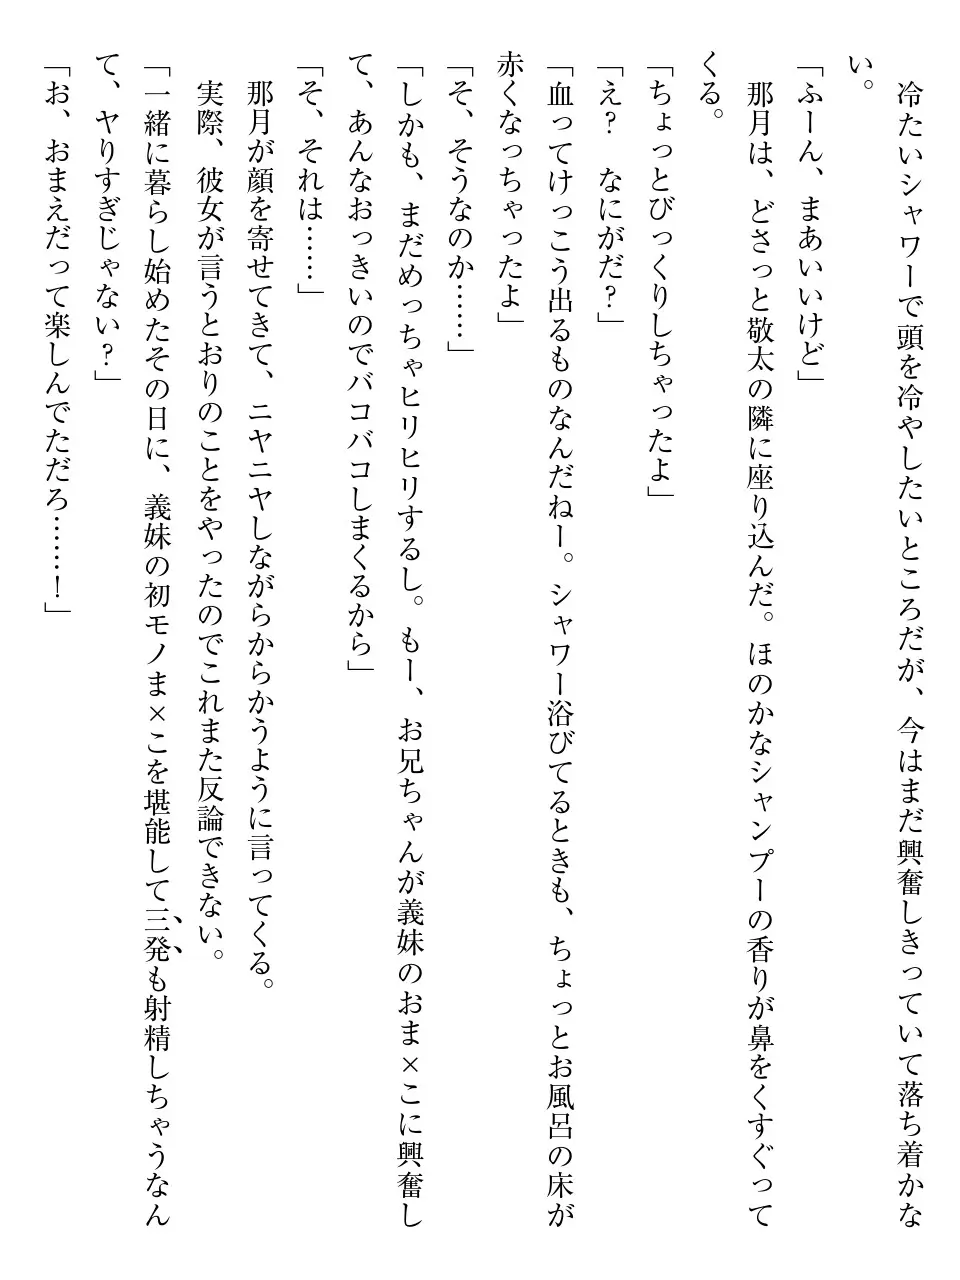 冷たいシャワーで頭を冷やしたいところだが、今はまだ興奮しきっていて落ち着かな
い。
「ふーん、まあいいけど」
　那月は、どさっと敬太の隣に座り込んだ。ほのかなシャンプーの香りが鼻をくすぐって
くる。
「ちょっとびっくりしちゃったよ」
「え？　なにがだ？」
「血ってけっこう出るものなんだねー。シャワー浴びてるときも、ちょっとお風呂の床が
赤くなっちゃったよ」
「そ、そうなのか……」
「しかも、まだめっちゃヒリヒリするし。もー、お兄ちゃんが義妹のおま×こに興奮し
て、あんなおっきいのでバコバコしまくるから」
「そ、それは……」
　那月が顔を寄せてきて、ニヤニヤしながらからかうように言ってくる。
　実際、彼女が言うとおりのことをやったのでこれまた反論できない。
「一緒に暮らし始めたその日に、義妹の初モノま×こを堪能して三発も射精しちゃうなん
て、ヤりすぎじゃない？」
「お、おまえだって楽しんでただろ……！」